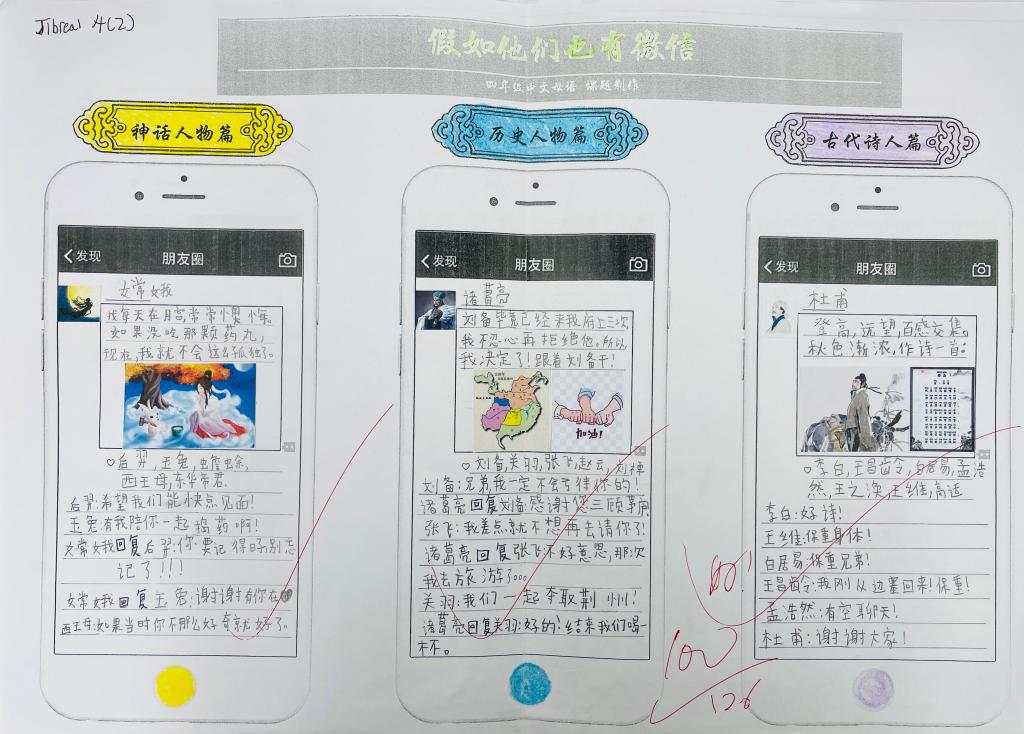 Jibreal 4(2)
假如他们也有微信
四年级中文母语 课题制作
神话人物篇
发现
朋友圈
嫦娥
我每天在月宫常常懊悔。
如果没吃那颗药丸,
现在,我就不会这么孤独了。
后羿,玉兔,蟾蜍,
西王母,东华帝君.
后羿:希望我们能快点见面!
玉兔:有我陪你一起捣药啊!
嫦娥回复后羿:你要记得哦别忘
记了!!!
嫦娥回复玉兔:谢谢有你在
西王母:如果当时你不那么好奇就好了。
历史人物篇
发现
朋友圈
诸葛亮
刘备毕竟已经来我府上三次
我不忍心再拒绝他。所以
我决定了!跟着刘备干!
加油!
刘备,关羽,张飞,赵云,刘禅
刘备:兄弟,我一定不会亏待你的!
诸葛亮回复刘备:感谢您三顾茅庐
张飞:我差点就不想再去请你了!
诸葛亮回复张飞:不好意思,那次
我去旅游了...
关羽:我们一起夺取荆州!
诸葛亮回复关羽:好的!结束我们喝一
杯。
古代诗人篇
发现
朋友圈
杜甫
登高,远望,百感交集。
秋色渐浓,作诗一首:
李白,王昌龄,白居易,孟浩
然,王之涣,王维,高适
李白:好诗!
王维:保重身体!
白居易:保重兄弟!
王昌龄:我刚从边塞回来!保重!
孟浩然:有空聊天!
杜甫:谢谢大家!
100
12/6